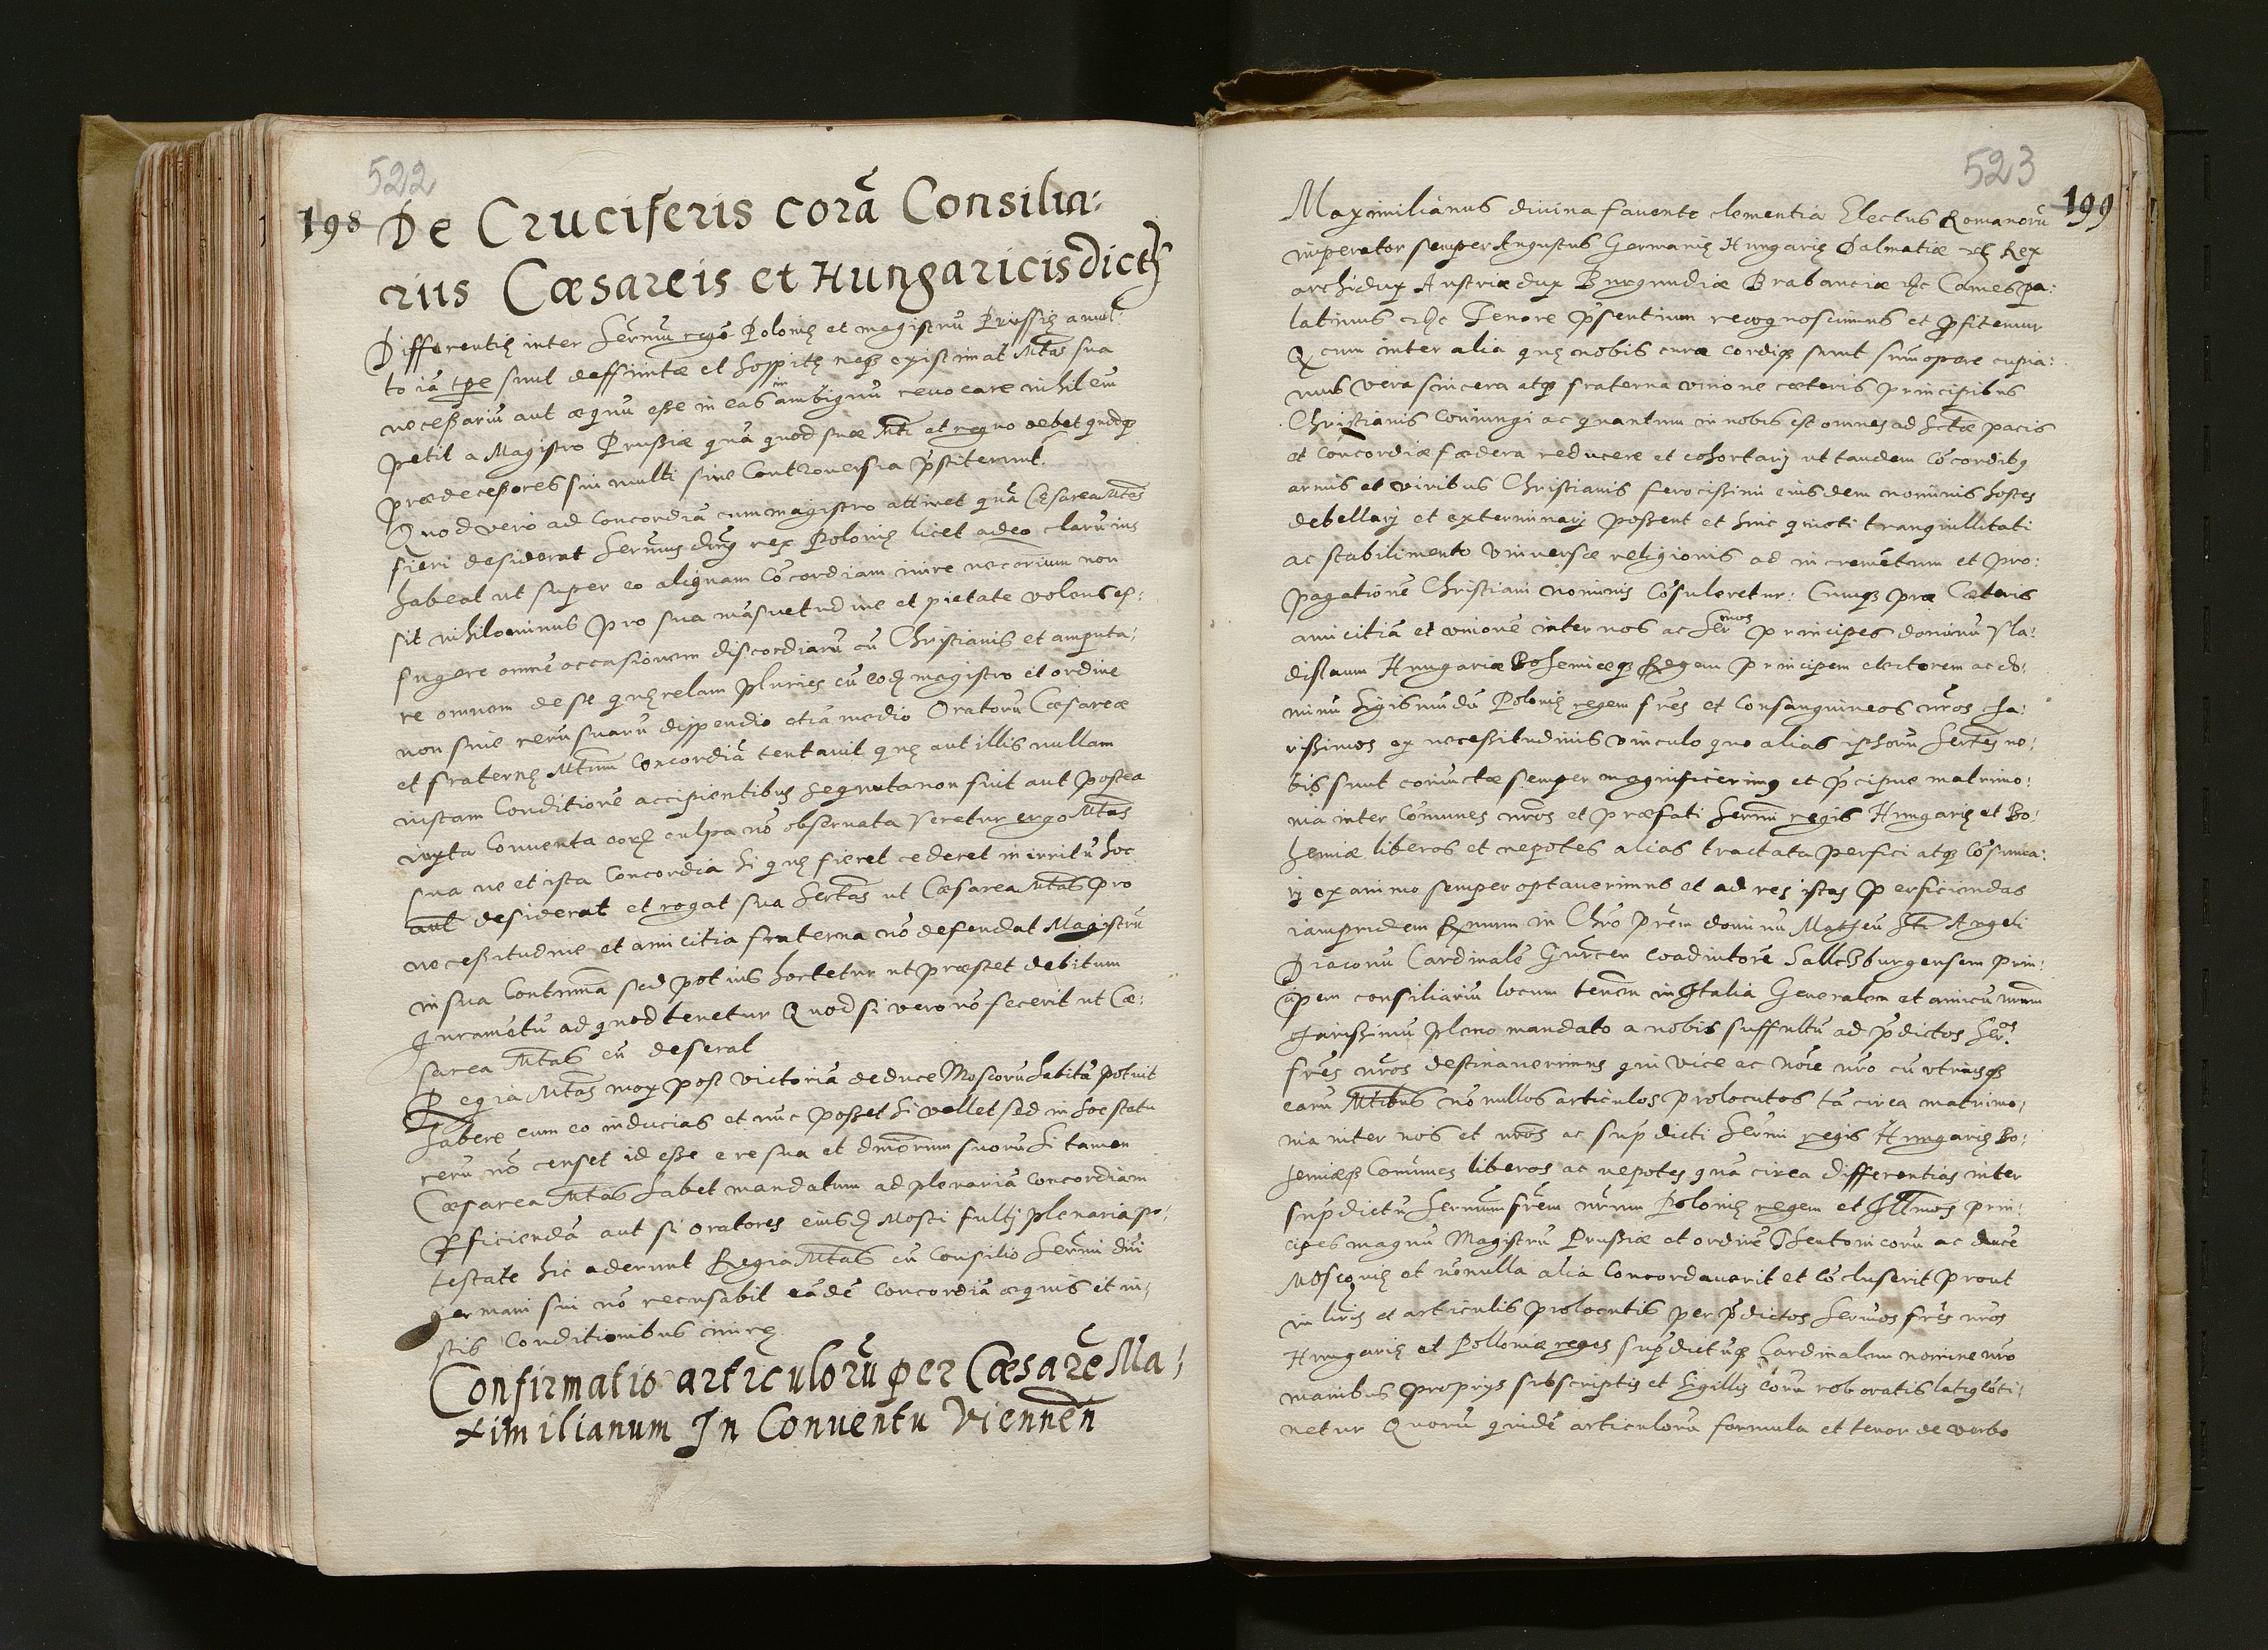 522
198 De Cruciferis corã Consilia:
riis Cæsareis et Hungaricis dictȝ
Differentię inter Serm̃u regẽ Polonię et magistrũ Prussię a mul:
to iã tp̃e sunt deffinitæ et sopitę neq3 existimat Mtãs sua
necessariũ aut æquũ esse in eas in ambiguũ reuocare nihil eñi
petit a Magistro Prussiæ quã quod suæ Mtĩ et regno debet quodq3
prædecessores sui multi sine Controuersia p̃stiterunt.
Quod vero ad Concordiã cum magistro attinet quã Cęsarea Mtãs
fieri desiderat Serm̃us dñs rex Polonię licet adeo clarũ ius
habeat ut super eo aliquam Cõcordiam inire necariũm non
sit nihilominus pro sua mãsuetudine et pietate volens ef:
fugere omnẽ occasionem discordiarũ cũ Christianis et amputa:
re omnem de se quęrelam pluries cũ eod magistro et ordine
non sine rerũ suarũ dispendio etiã medio Oratorũ Cæsareæ
et fraternę Mtũm Concordiã tentauit quę aut illis nullam
iustam Conditionẽ accipientibus sequuta non fuit aut postea
iuxta Conuenta eorȝ culpa nõ obseruata Veretur ergo Mtãs
sua ne et ista Concordia si quę fieret cederet in irritũ hoc
aut desiderat et rogat sua Sertãs ut Cæsarea Mtãs pro
necessitudine et amicitia fraterna nõ defendat Magistrũ
in sua Contumã sed potius hortetur ut præstet debitum
Juramẽtũ ad quod tenetur Quod si vero nõ fecerit ut Cæ:
sarea Mtãs eũ deserat
Regia Mtãs mox post victoriã de duce Moscorũ habitã potuit
habere cum eo inducias et nũc posset si vellet sed in hoc statu
rerũ nõ censet id esse e re sua et dm̃orum suorũ Si tamen
Cæsarea Mtãs habet mandatum ad plenariã concordiam
pficiendã aut si oratores eiusd Mosci fultj plenaria po:
testate hic aderunt Regia Mtãs cũ Consilio Serm̃i dñi
germani sui nõ recusabit eãdẽ Concordiã æquis et iu:
stis Conditionibus inirę
Confirmatio articulorũ per Cæsarẽ Ma:
ximilianum In Conuentu Viennen̄
523
199
Maximilianus diuina fauente clementia Electus Romanorũ
imperator semper Augustus Germanię Hungarię Dalmatiæ etc Rex
archidux Austriæ dux Burgundiæ Brabanciæ etc Comes pa:
latinus etc Tenore p̃sentium recognoscimus et profitemur
Q cum inter alia quę nobis curæ cordiq3 sunt sum̃opere cupia:
mus vera sincera atq3 fraterna vnione cæteris principibus
Christianis Coniungi ac quantum in nobis est omnes ad Sctæ pacis
et Concordiæ fædera reducere et cohortarij ut tandem Cõcordibȝ
armis et viribus Christianis ferocissimi eiusdem nominis hostes
debellarj et exterminarj possent et hinc quieti tranquillitati
ac stabilimento Vniuersæ religionis ad incremẽtum et pro:
pagationẽ Christiani nominis Cõsuleretur: Cumq3 præ Cæteris
amicitiã et vnionẽ inter nos ac Sermos principes dominũ Vla:
dislaum Hungariæ Bohemiæq3 Regem principem electorem ac do:
minũ Sigismũdũ Polonię regem frẽs et Consanguineos nr̃os cha:
rissimos ex necessitudinis vinculo quo alias ipsorũ Sertẽs no:
bis sunt coniũctæ semper magnificerimȝ et p̃cipue matrimo:
nia inter Cõmunes nr̃os et præfati Serm̃i regis Hungarię et Bo:
hemiæ liberos et nepotes alias tractata perfici atq3 Cõsuma:
rj ex animo semper optauerimus et ad res istas perficiendas
iampridem Rmum in Chro prẽm dominũ Matheũ Stĩ Angeli
Diaconũ Cardinalẽ Gurcen Coadiutorẽ Saltzburgensem prin:
cipem consiliariũ locum tenem̃ in Italia Generalem et amicũ nrũm
charissimũ pleno mandato a nobis suffultũ ad p̃dictos Seros
frẽs nr̃os destinauerimus qui vice ac noĩe nr̃o cũ vtrisq3
earũ Mtĩbus nõ nullos articulos prolocutos tã circa matrimo:
nia inter nos et nr̃os ac sup̃dicti Serm̃i regis Hungarię Bo:
hemiæq3 Comunes liberos ac nepotes quã circa differentias inter
sup̃dictũ Sermum frẽm nrũm Polonię regem et Illmos prin:
cipes magnũ Magistrũ Prussiæ et ordinẽ Theutonicorũ ac ducẽ
Moscouię et nõnulla alia Concordauerit et Cõcluserit prout
in lrĩs et articulis prolocutis per p̃dictos Sermos frẽs nr̃os
Hungarię et Polloniæ reges sup̃dictũq3 Cardinalem nomine nr̃o
manibus proprijs subscriptis et sigillis eorũ roboratis latiȝ cõti:
netur Quorũ quidẽ articulorũ formula et tenor de verbo